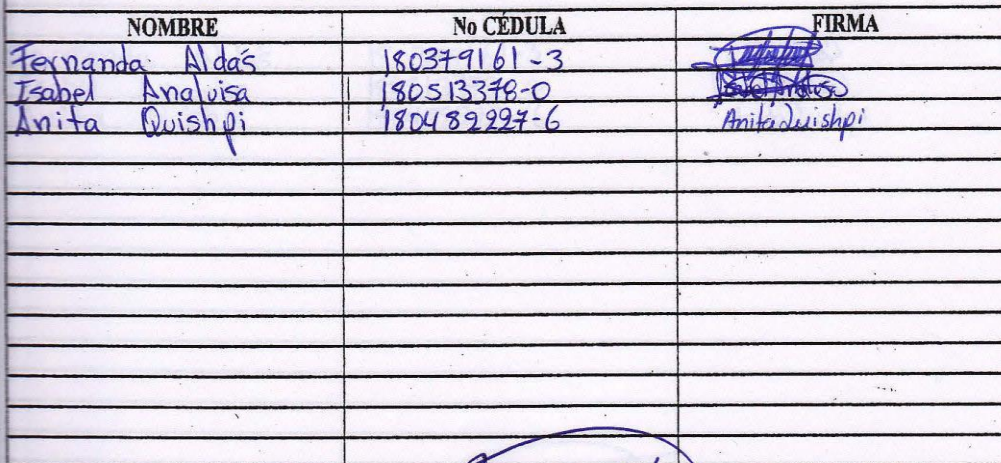 NOMBRE No CÉDULA FIRMA
Fernanda Aldás 180379161-3
Isabel Analuisa 180513378-0
Anita Quishpi 180489227-6 Anita Quishpi